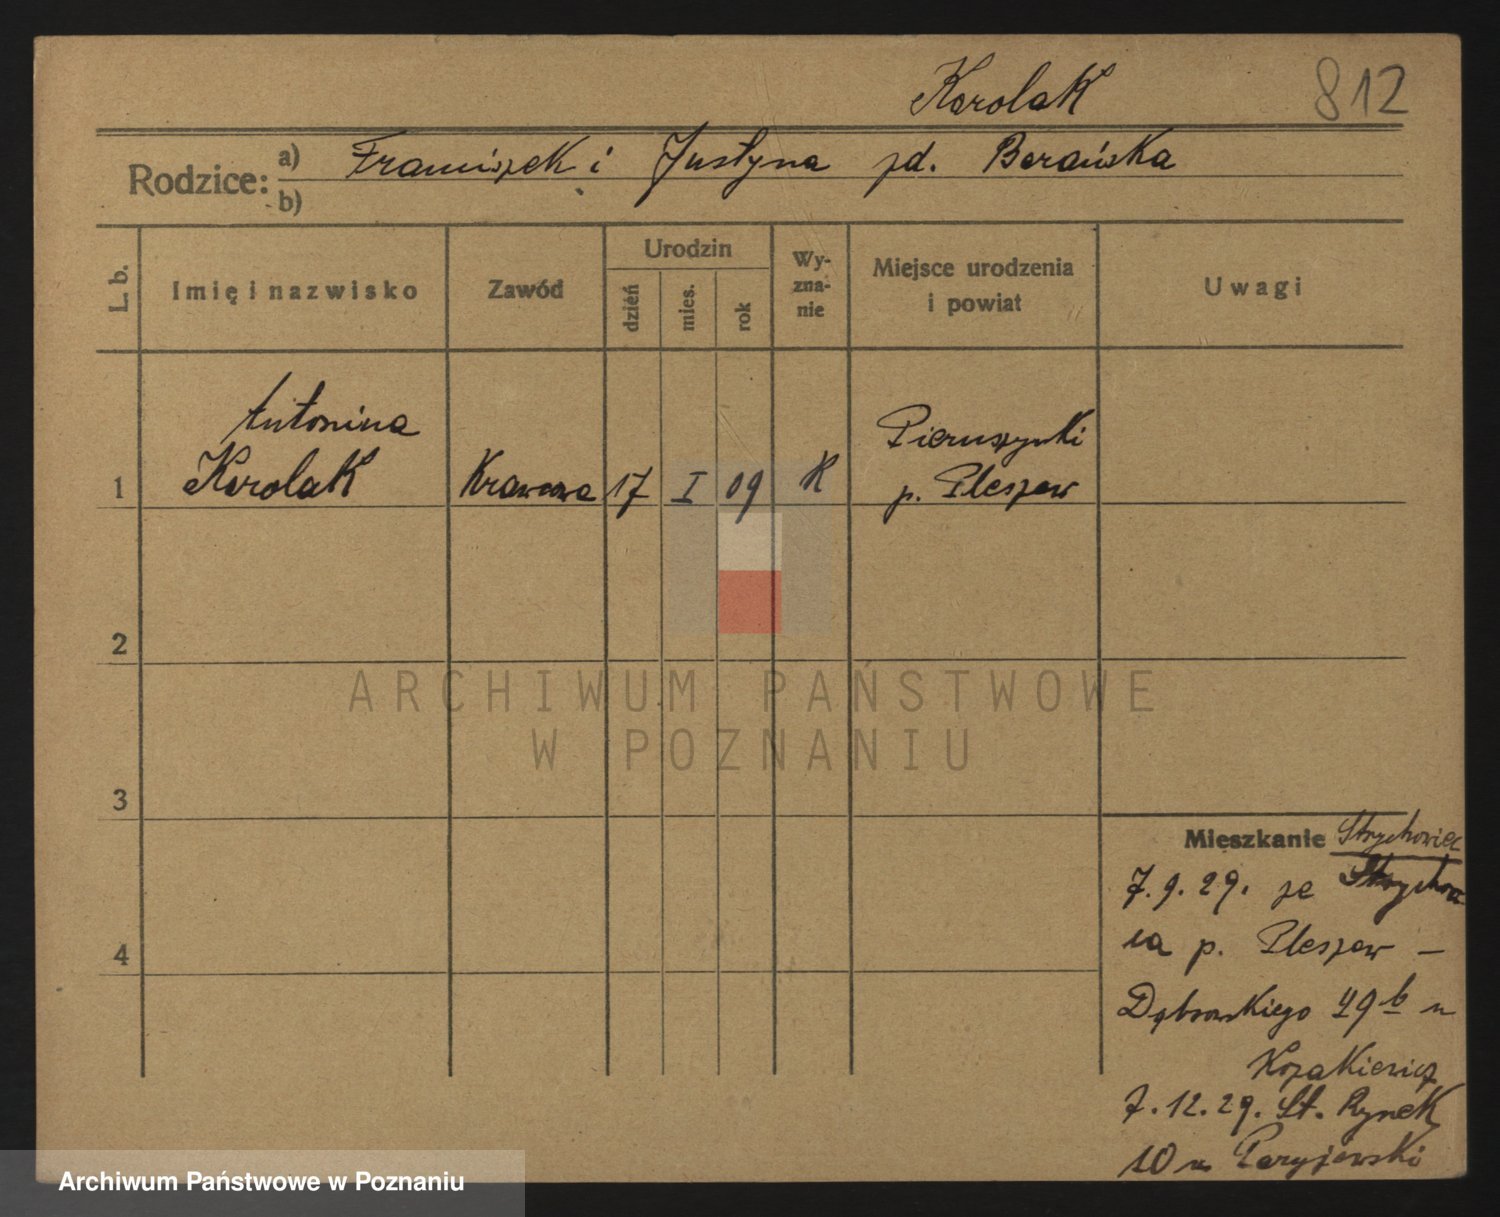 Karolak
812
Rodzice: a) Franciszek i Justyna zd. Barańska
b)
L. b.
Imię i nazwisko
Zawód
Urodzin
dzień
mies.
rok
Wy-
zna-
nie
Miejsce urodzenia
i powiat
Uwagi
Antonina
Karolak
1
Krawcowa
17
I
09
K
Pieruszynki
p. Pleszew
2
3
4
ARCHIWUM PAŃSTWOWE
W POZNANIU
Mieszkanie Strychowiec
7.9.29. ze
p. Pleszew –
Dąbrowskiego 49 b u
Kozakiewicz
7.12.29. St. Rynek
10 u Paryjewski
Archiwum Państwowe w Poznaniu